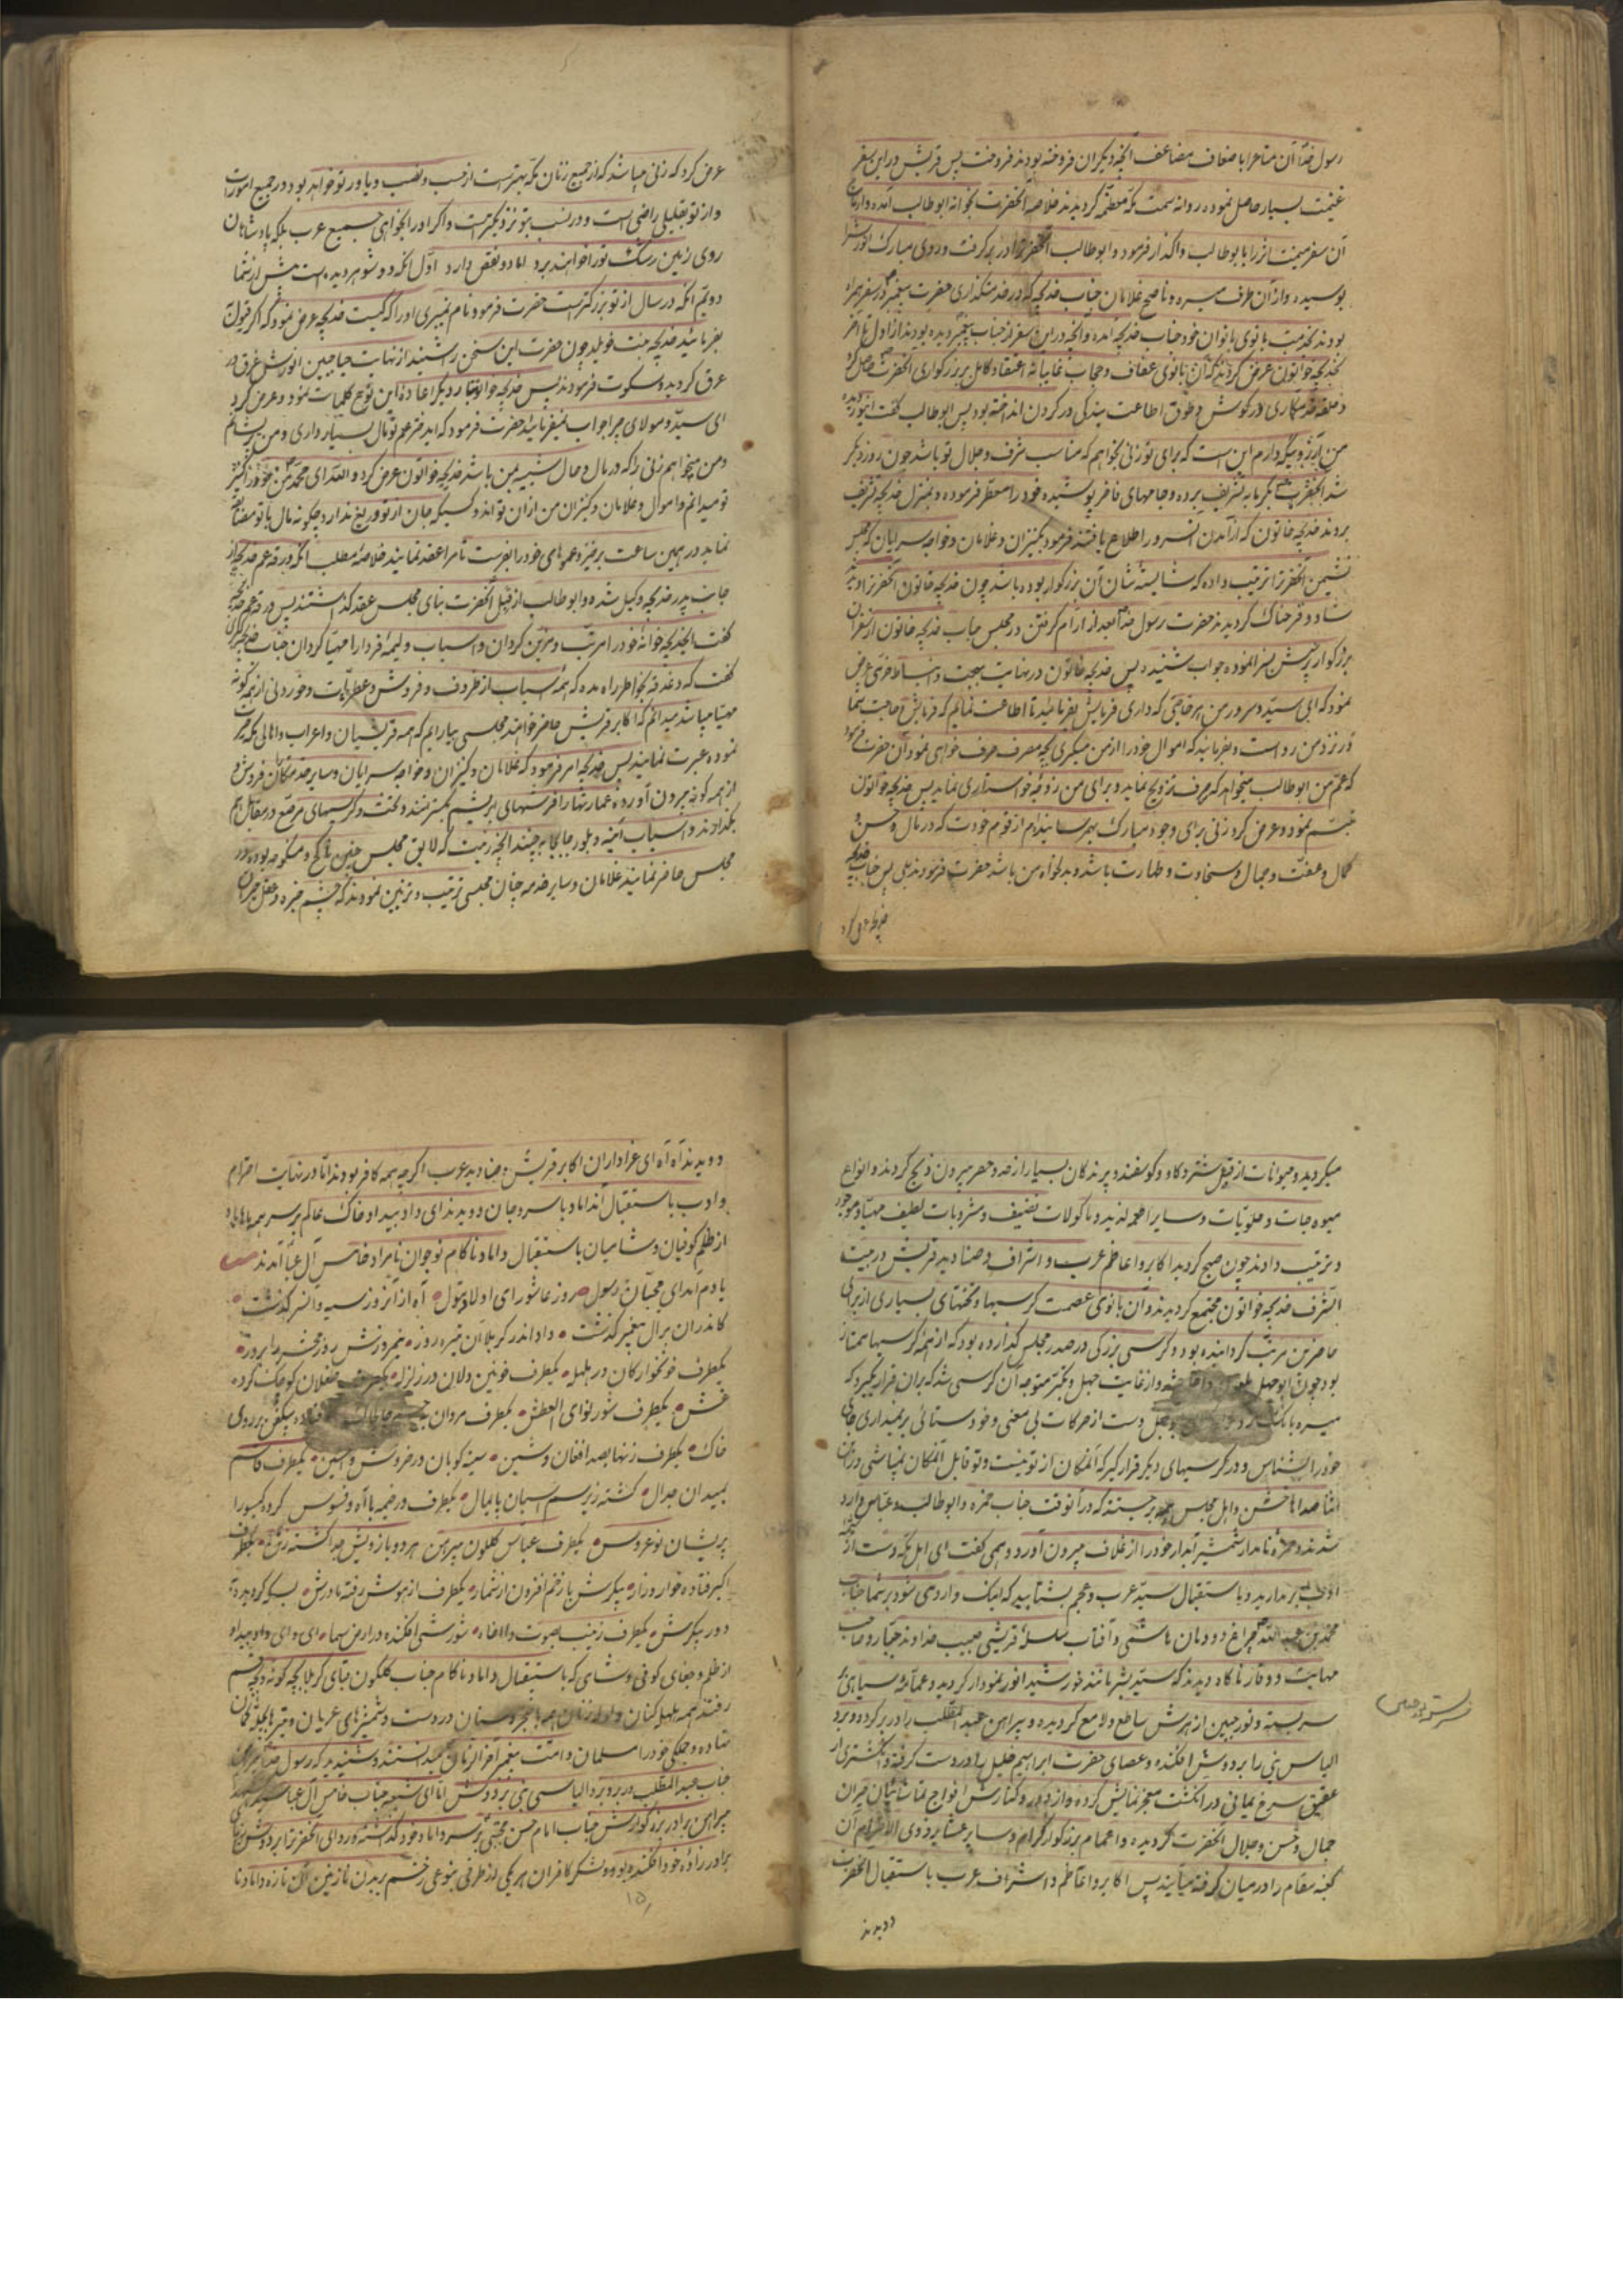 رسول خدا آن متاع را باضعاف مضاعف آنچه دیگران فروخته بودند فروخت پس قریش در این سفر
غنیمت بسیار حاصل نموده روانه سمت مکه معظمه گردیدند خلاصه آنحضرت بخوانه ابوطالب آمده وارباح
آن سفر میمنت اثر را بابوطالب واگذار فرمود و ابوطالب آنحضرترا در بر گرفت و روی مبارک انورش را
بوسیده و از آن طرف میسره و ناصح غلامان جناب خدیجه که در خدمتگذاری حضرت پیغمبر در سفر همراه
بودند بخدمت بانوی بانوان خود جناب خدیجه آمده و آنچه در این سفر از جناب پیغمبر دیده بودند از اول تا آخر
بخدیجه خواتون عرض کردند که آن بانوی عفاف و حجاب غایبانه اعتقاد کامل بر بزرگواری آنحضرت حاصل
و حلقه خدمتکاری در گوش و طوق اطاعت بندگی در گردن انداخته بود پس ابوطالب گفت ای نور دیده
من آرزوئیکه دارم این است که برای تو زنی بخواهم که مناسب شرف و جلال تو باشد چون روز دیگر
شد آنحضرت بگرمابه تشریف برده و جامهای فاخر پوشیده خود را معطر فرموده و بمنزل خدیجه تشریف
بردند خدیجه خاتون که از آمدن آنسرور اطلاع یافتند فرمود بکنیزان و غلامان و خواجه سرایان که مجلس
نشیمن آنحضرترا ترتیب داده که شایسته شأن آن بزرگوار بوده باشد چون خدیجه خاتون آنحضرترا دید
شاد و فرحناک گردیدند حضرت رسول خدا بعد از آرام گرفتن در مجلس جناب خدیجه خاتون از سفر آن
بزرگوار پرسش سفر نموده جواب شنیده پس خدیجه خاتون در نهایت بهجت و بشاشت و خرمی عرض
نمود که ای سید و سرور من هر حاجتی که داری فرمایش بفرمائید تا اطاعت نمایم که فرمایش و حاجت شما
در نزد من رواست و بفرمائید که اموال خود را از من میگیری بچه مصرف صرف خواهی نمود آن حضرت فرمود
که عم من ابوطالب میخواهد که صرف تزویج نماید و برای من زوجه خواستاری نماید پس خدیجه خواتون
تبسم نمود و عرض کرد زنی برای وجود مبارک بهم رسانیدم از قوم خودت که در مال و حسن و
کمال و عفت و جمال و سخاوت و طهارت باشد و بدلخواه من باشد حضرت فرمودند بلی پس جناب خدیجه
عرض کرد که زنی میباشد که از جمیع زنان مکه بهتر است از حسب و نسب و یاور تو خواهد بود در جمیع امورات
و از تو بقلیلی راضی است و در نسب بتو نزدیکتر است و اگر او را بخواهی جمیع عرب بلکه پادشاهان
روی زمین رشک تو را خواهند برد اما دو نقص دارد اول آنکه دو شوهر دیده است پیش از شما
دویم آنکه در سال از تو بزرگتر است حضرت فرمود نام نمیبری او را که کیست خدیجه عرض نمود که اگر قبول
بفرمائید خدیجه بنت خویلد چون حضرت این سخن را شنید از نهایت حیا جبین انورش غرق در
عرق گردیده سکوت فرمودند پس خدیجه خواتون بار دیگر اعاده این نوع کلمات نمود و عرض کرد
ای سید و مولای من چرا جواب نمیفرمائید حضرت فرمود که ای دختر عم تو مال بسیار داری و من پریشانم
و من میخواهم زنی را که در مال و حال شبیه بمن باشد خدیجه خواتون عرض کرد والله ای محمد من خود را کنیز
تو میدانم و اموال و غلامان و کنیزان من از آن تواند و کسیکه جان از تو دریغ ندارد چگونه مال با تو مضایقه
نماید در همین ساعت برخیز و عموهای خود را بفرست تا مرا عقد نمایند خلاصه مطلب آنکه ورقه عم خدیجه از
جانب پدر خدیجه وکیل شده و ابوطالب از قبل آنحضرت بنای مجلس عقد گذاشتند پس ورقه عم خدیجه
گفت ای خدیجه خوانه خود را مرتب و مزین گردان و اسباب ولیمه فردا را مهیا گردان جناب خدیجه کبری
گفت که دغدغه بخاطر راه مده که همه اسباب از ظروف و فروش و عطریات و خوردنی از همه گونه
مهیا میباشد میدانم که اکابر قریش حاضر خواهند مجلسی بیارایم که همه قریشیان و اعراب و اهالی مکه حیرت
نموده عبرت نمایند پس خدیجه امر فرمود که غلامان و کنیزان و خواجه سرایان و سایر خدمتکاران فروش و
از همه گونه بیرون آورده عمارتها را فرشهای ابریشم بگسترند و تخت و کرسیهای مرصع در مقابل هم
بگذارند و اسباب آینه و بلور جابجا بچینند آنچه زینت که لایق مجلس چنین ناکح و منکوحه بوده در
مجلس حاضر نمایند غلامان و سایر خدمه چنان مجلسی ترتیب و تزیین نمودند که چشم خیره و عقل حیران
میگردید و حیوانات از قبل شتر و گاو و گوسفند و پرندگان بسیار از حد و حصر بیرون ذبح کردند و انواع
میوه جات و حلویات و سایر اطعمه لذیذ و ماکولات نضیف و مشروبات لطیف مهیا و موجود
و ترتیب دادند چون صبح گردید اکابر و اعاظم عرب و اشراف و صنادید قریش در بیت
الشرف خدیجه خواتون مجتمع گردیدند و آن بانوی عصمت کرسیها و تختهای بسیاری از برای
حاضرین مرتب گردانیده بود و کرسی بزرگی در صدر مجلس گذارده بود که از همه کرسیها ممتاز
بود چون ابوجهل و از غایت جهل و تکبر متوجه آن کرسی شد که بر آن قرار بگیرد که
میسره بانگ زد دست از حرکات بی معنی و خودستائی بر نمیداری جای
خود را بشناس و در کرسیهای دیگر قرار گیر که آنمکان از تو نیست و تو قابل آنمکان نمیباشی در آن
اثنا صداها خشن و اهل مجلس بر جستند که در آنوقت جناب حمزه و ابوطالب و عباس وارد
شدند و حمزه نامدار شمشیر آبدار خود را از غلاف بیرون آورد و همی گفت ای اهل مکه دست از
ادب بر ندارید و باستقبال سید عرب و عجم بشتابید که اینک وارد می شود بر شما جناب
محمد بن عبد الله چراغ دودمان هاشمی و آفتاب سلسله قریشی حبیب خداوند جبار و صاحب
مهابت و وقار ناگاه دیدند که سید بشر مانند خورشید انور نمودار گردید و عمامه سیاهی
سر بسته و نور جبین ازهرش ساطع و لامع گردیده و پیراهن عبد المطلب را در بر کرده و برد
الیاس نبی را بر دوش افکنده و عصای حضرت ابراهیم خلیل را در دست گرفته و انگشتری از
عقیق سرخ یمانی در انگشت معجز نمایش کرده و از دور و کنارش افواج تماشائیان حیران
جمال و حسن و جلال آنحضرت گردیده و اعمام بزرگوار گرام و سایر عشایر ذوی الاحترام آن
کعبه مقام را در میان گرفته میآیند پس اکابر و اعاظم و اشراف عرب باستقبال آنحضرت
دویدند
دویدند آه آه ای عزاداران اکابر قریش و صنادید عرب اگرچه همه کافر بودند اما در نهایت احترام
و ادب باستقبال آنداماد با سر و جان دویدند ای داد بیداد خاک عالم بر سر همه ماها باد
از ظلم کوفیان و شامیان باستقبال داماد ناکام نوجوان نامراد خامس آل عبا آمدند
یادم آمد ای محبان رسول روز عاشورای اولاد بتول آه از آنروز سیه و آنسرگذشت
کاندران بر آل پیغمبر گذشت داد اندر کربلا آن تیره روز نیم روزش روز محشر را بروز
یکطرف خونخوارگان در هلهله یکطرف خونین دلان در زلزله یکطرف طفلان کوچک کرده
غش یکطرف شور نوای العطش یکطرف مردان بیکفن بر روی
خاک یکطرف زنها بصد افغان و شین سینه کوبان در خروش و یکطرف قاسم
بمیدان جدال کشته زیر سم اسبان پایمال یکطرف در خیمه با آه و فسوس کرده گیسو را
پریشان نوعروس یکطرف عباس گلگون پیرهن هر دو بازویش جدا گشته ز تن یکطرف
اکبر فتاده خوار و زار پیکرش با زخم افزون از شمار یکطرف از هوش رفته مادرش
دور پیکرش یکطرف زینب بصوت وا اخاه شورشی افکنده در ارض و سما ای وای داد بیداد
از ظلم و جفای کوفی و شامی که باستقبال داماد ناکام جناب گلگون قبای کربلا بچه گونه و چه قسم
رفتند همه هلهله کنان در دست و شمشیرهای عریان و تیرها بچله کمان
نهاده و جنگی خود را مسلمان و امت پیغمبر آخر الزمان میدانستند و شنیدید که رسول خدا پیراهن
جناب عبد المطلب در بر و برد الیاس نبی بر دوش اما ای شیعه جناب خامس آل عبا
پیراهن برادر بزرگوارش جناب امام حسن مجتبی بر سر داماد خود گذاشته و ردای آنحضرترا بر دوش
برادر زاده خود افکنده بود و لشکر کافران هر یکی از طرفی بنوعی زخم بر بدن نازنین آن تازه داماد نا
۱۵